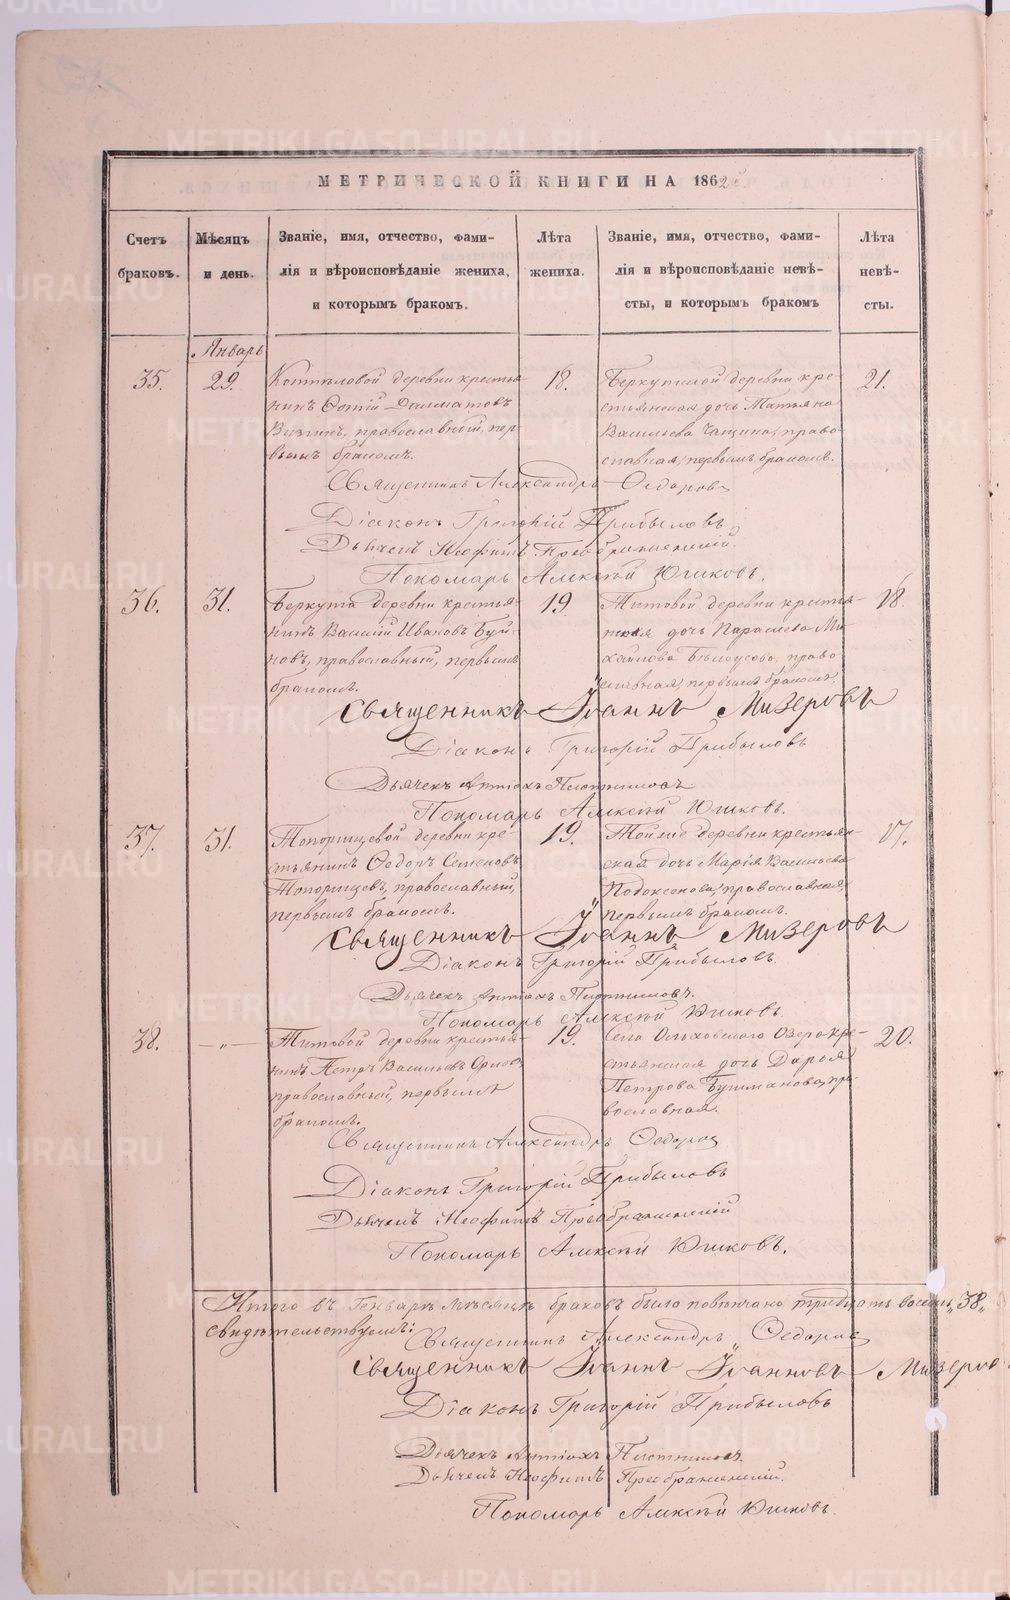 МЕТРИЧЕСКОЙ КНИГИ НА 1862
Счетъ браковъ.
Мѣсяцъ и день.
Званіе, имя, отчество, фами-
лія и вѣроисповѣданіе жениха,
и которымъ бракомъ.
Лѣта жениха.
Званіе, имя, отчество, фами-
лія и вѣроисповѣданіе невѣ-
сты, и которымъ бракомъ
Лѣта невѣ-
сты.
Январь
35.
29.
деревни крестья-
нинъ Фотій Далматовъ
православный, пер-
вымъ бракомъ.
18.
деревни кре-
стьянская дочь Татьяна
Васильева Чащина, право-
славная, первымъ бракомъ.
21.
Священникъ Александръ Федоровъ
Діаконъ Григорій Прибыловъ
Дьячекъ Неофитъ Преображенскій
Пономарь Алексѣй Юшковъ.
36.
31.
Беркута деревни крестья-
нинъ Василій Ивановъ Буй-
новъ, православный, первымъ
бракомъ.
19
Титовой деревни крестья-
нская дочь Параскева Ми-
хайлова Бѣлоусова, право-
славная, первымъ бракомъ.
18.
Священникъ Іоаннъ Мизеровъ
Діаконъ Григорій Прибыловъ
Дьячекъ Антіохъ Плотниковъ
Пономарь Алексѣй Юшковъ.
37.
31.
Топорищевой деревни кре-
стьянинъ Федоръ Семеновъ
Топорищевъ, православный,
первымъ бракомъ.
19.
деревни крестьян-
ская дочь Марія Васильева
Подоксенова, православная,
первымъ бракомъ.
17.
Священникъ Іоаннъ Мизеровъ
Діаконъ Григорій Прибыловъ.
Дьячекъ Антіохъ Плотниковъ.
Пономарь Алексѣй Юшковъ.
38.
— „ —
Титовой деревни крестья-
нинъ Петръ Васильевъ Орловъ
православный, первымъ
бракомъ.
19.
Села Ольховскаго Озера кре-
стьянская дочь Дарья
Петрова Бушманова, пра-
вославная.
20.
Священникъ Александръ Федоровъ
Діаконъ Григорій Прибыловъ
Дьячекъ Неофитъ Преображенскій
Пономарь Алексѣй Юшковъ.
Итого въ Генварѣ мѣсяцѣ браковъ было повѣнчано тридцать восемь „38„
свидѣтельствуемъ:
Священникъ Александръ Федоровъ
Священникъ Іоаннъ Іоанновъ Мизеров
Діаконъ Григорій Прибыловъ
Дьячекъ Антіохъ Плотниковъ.
Дьячекъ Неофитъ Преображенскій.
Пономарь Алексѣй Юшковъ.
METRIKI.GASO-URAL.RU